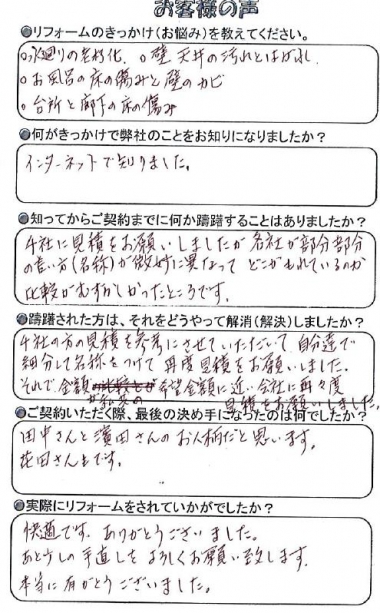 お客様の声
●リフォームのきっかけ（お悩み）を教えてください。
○水廻りの老朽化、○壁 天井の汚れとはがれ
○お風呂の床の傷みと壁のカビ
○台所と廊下の床の傷み
●何がきっかけで弊社のことをお知りになりましたか？
インターネットで知りました。
●知ってからご契約までに何か躊躇することはありましたか？
4社に見積をお願いしましたが 各社が部分部分
の言い方（名称）が微妙に異なって どこがもれているのか
比較がむずかしかったところです。
●躊躇された方は、それをどうやって解消（解決）しましたか？
4社の方の見積を参考にさせていただいて 自分達で
細分して名称をつけて 再度見積をお願いしました。
それで金額 希望金額に近い会社に再々度
見積をお願いしました。
●ご契約いただく際、最後の決め手になったのは何でしたか？
田中さんと濱田さんのお人柄だと思います。
花田さんもです。
●実際にリフォームをされていかがでしたか？
快適です。ありがとうございました。
あと少しの手直しを よろしくお願い致します。
本当に有がとうございました。